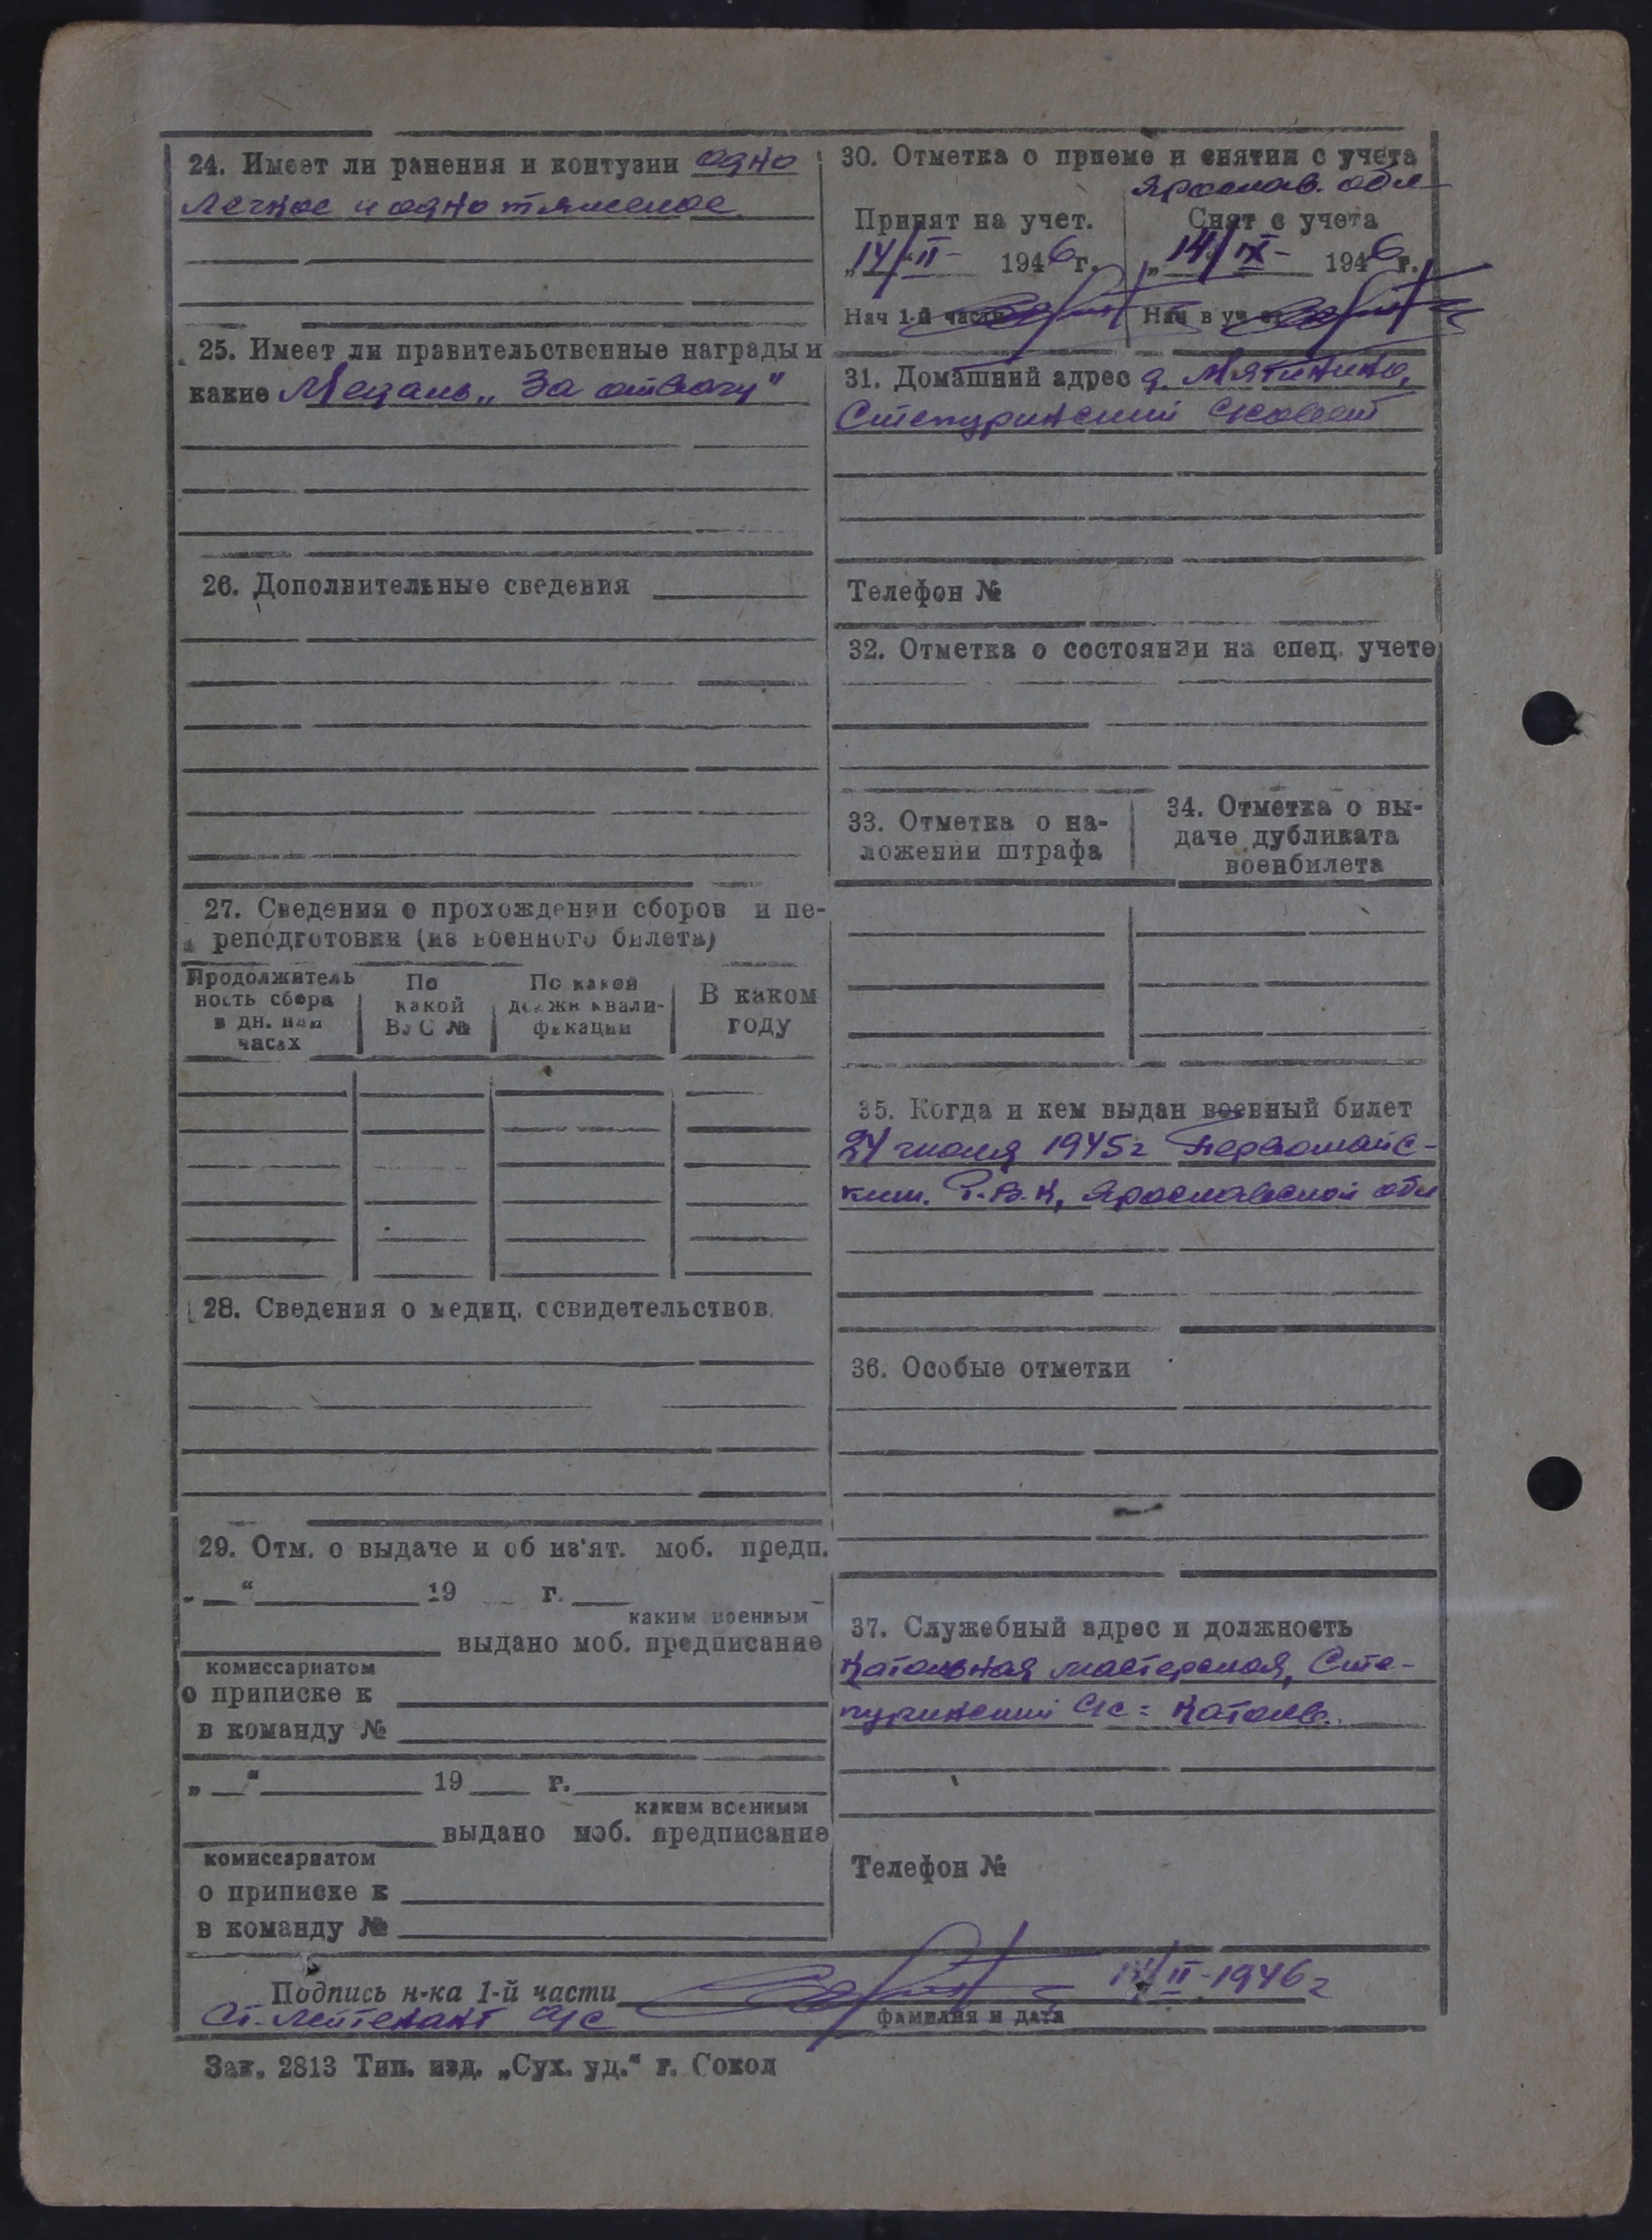 24. Имеет ли ранения и контузии одно
легкое и одно тяжелое.
25. Имеет ли правительственные награды и
какие Медаль „За отвагу"
26. Дополнительные сведения
27. Сведения о прохождении сборов и пе-
реподготовки (из военного билета)
Продолжитель
ность сбора
в дн. или
часах
По
какой
ВУС №
По какой
должн квали-
фикации
В каком
году
28. Сведения о медиц. освидетельствов.
29. Отм. о выдаче и об из'ят. моб. предп.
„ “ 19 г.
каким военным
выдано моб. предписание
комиссариатом
о приписке к
в команду №
„ “ 19 г.
каким военным
выдано моб. предписание
комиссариатом
о приписке к
в команду №
30. Отметка о приеме и снятии с учета
Ярослав. обл
Принят на учет.
Снят с учета
„14/II- 1946 г.
„14/IX- 1946 г.
Нач 1-й части
Нач в уч
31. Домашний адрес д. Мятинино,
Степуринский с/совет
Телефон №
32. Отметка о состоянии на спец. учете
33. Отметка о на-
ложении штрафа
34. Отметка о вы-
даче дубликата
военбилета
35. Когда и кем выдан военный билет
24 июля 1945г Первомайс-
ким. Р.В.К, Ярославской обл
36. Особые отметки
37. Служебный адрес и должность
Катольная мастерская, Сте-
пуринский с/с = Католь.
Телефон №
Подпись н-ка 1-й части
14/II-1946г
Ст. лейтенант а/с
фамилия и дата
Зак. 2813 Тип. изд. „Сух. уд.“ г. Сокол